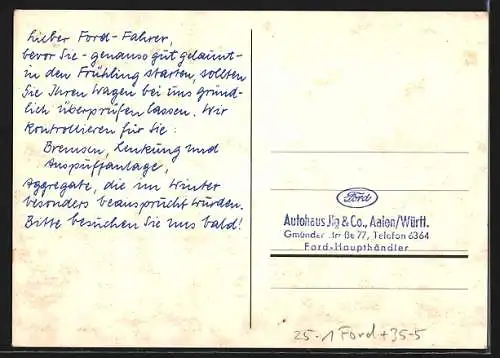 Lieber Ford-Fahrer,
bevor Sie - genauso gut gelaunt -
in den Frühling starten, sollten
Sie Ihren Wagen bei uns gründ-
lich überprüfen lassen. Wir
kontrollieren für Sie:
Bremsen, Lenkung und
Auspuffanlage,
Aggregate, die im Winter
besonders beansprucht wurden.
Bitte besuchen Sie uns bald!
Ford
Autohaus & Co., Aalen/Württ.
Gmünder 77, Telefon 6364
Ford-Haupthändler
25-1 Ford + 35-5